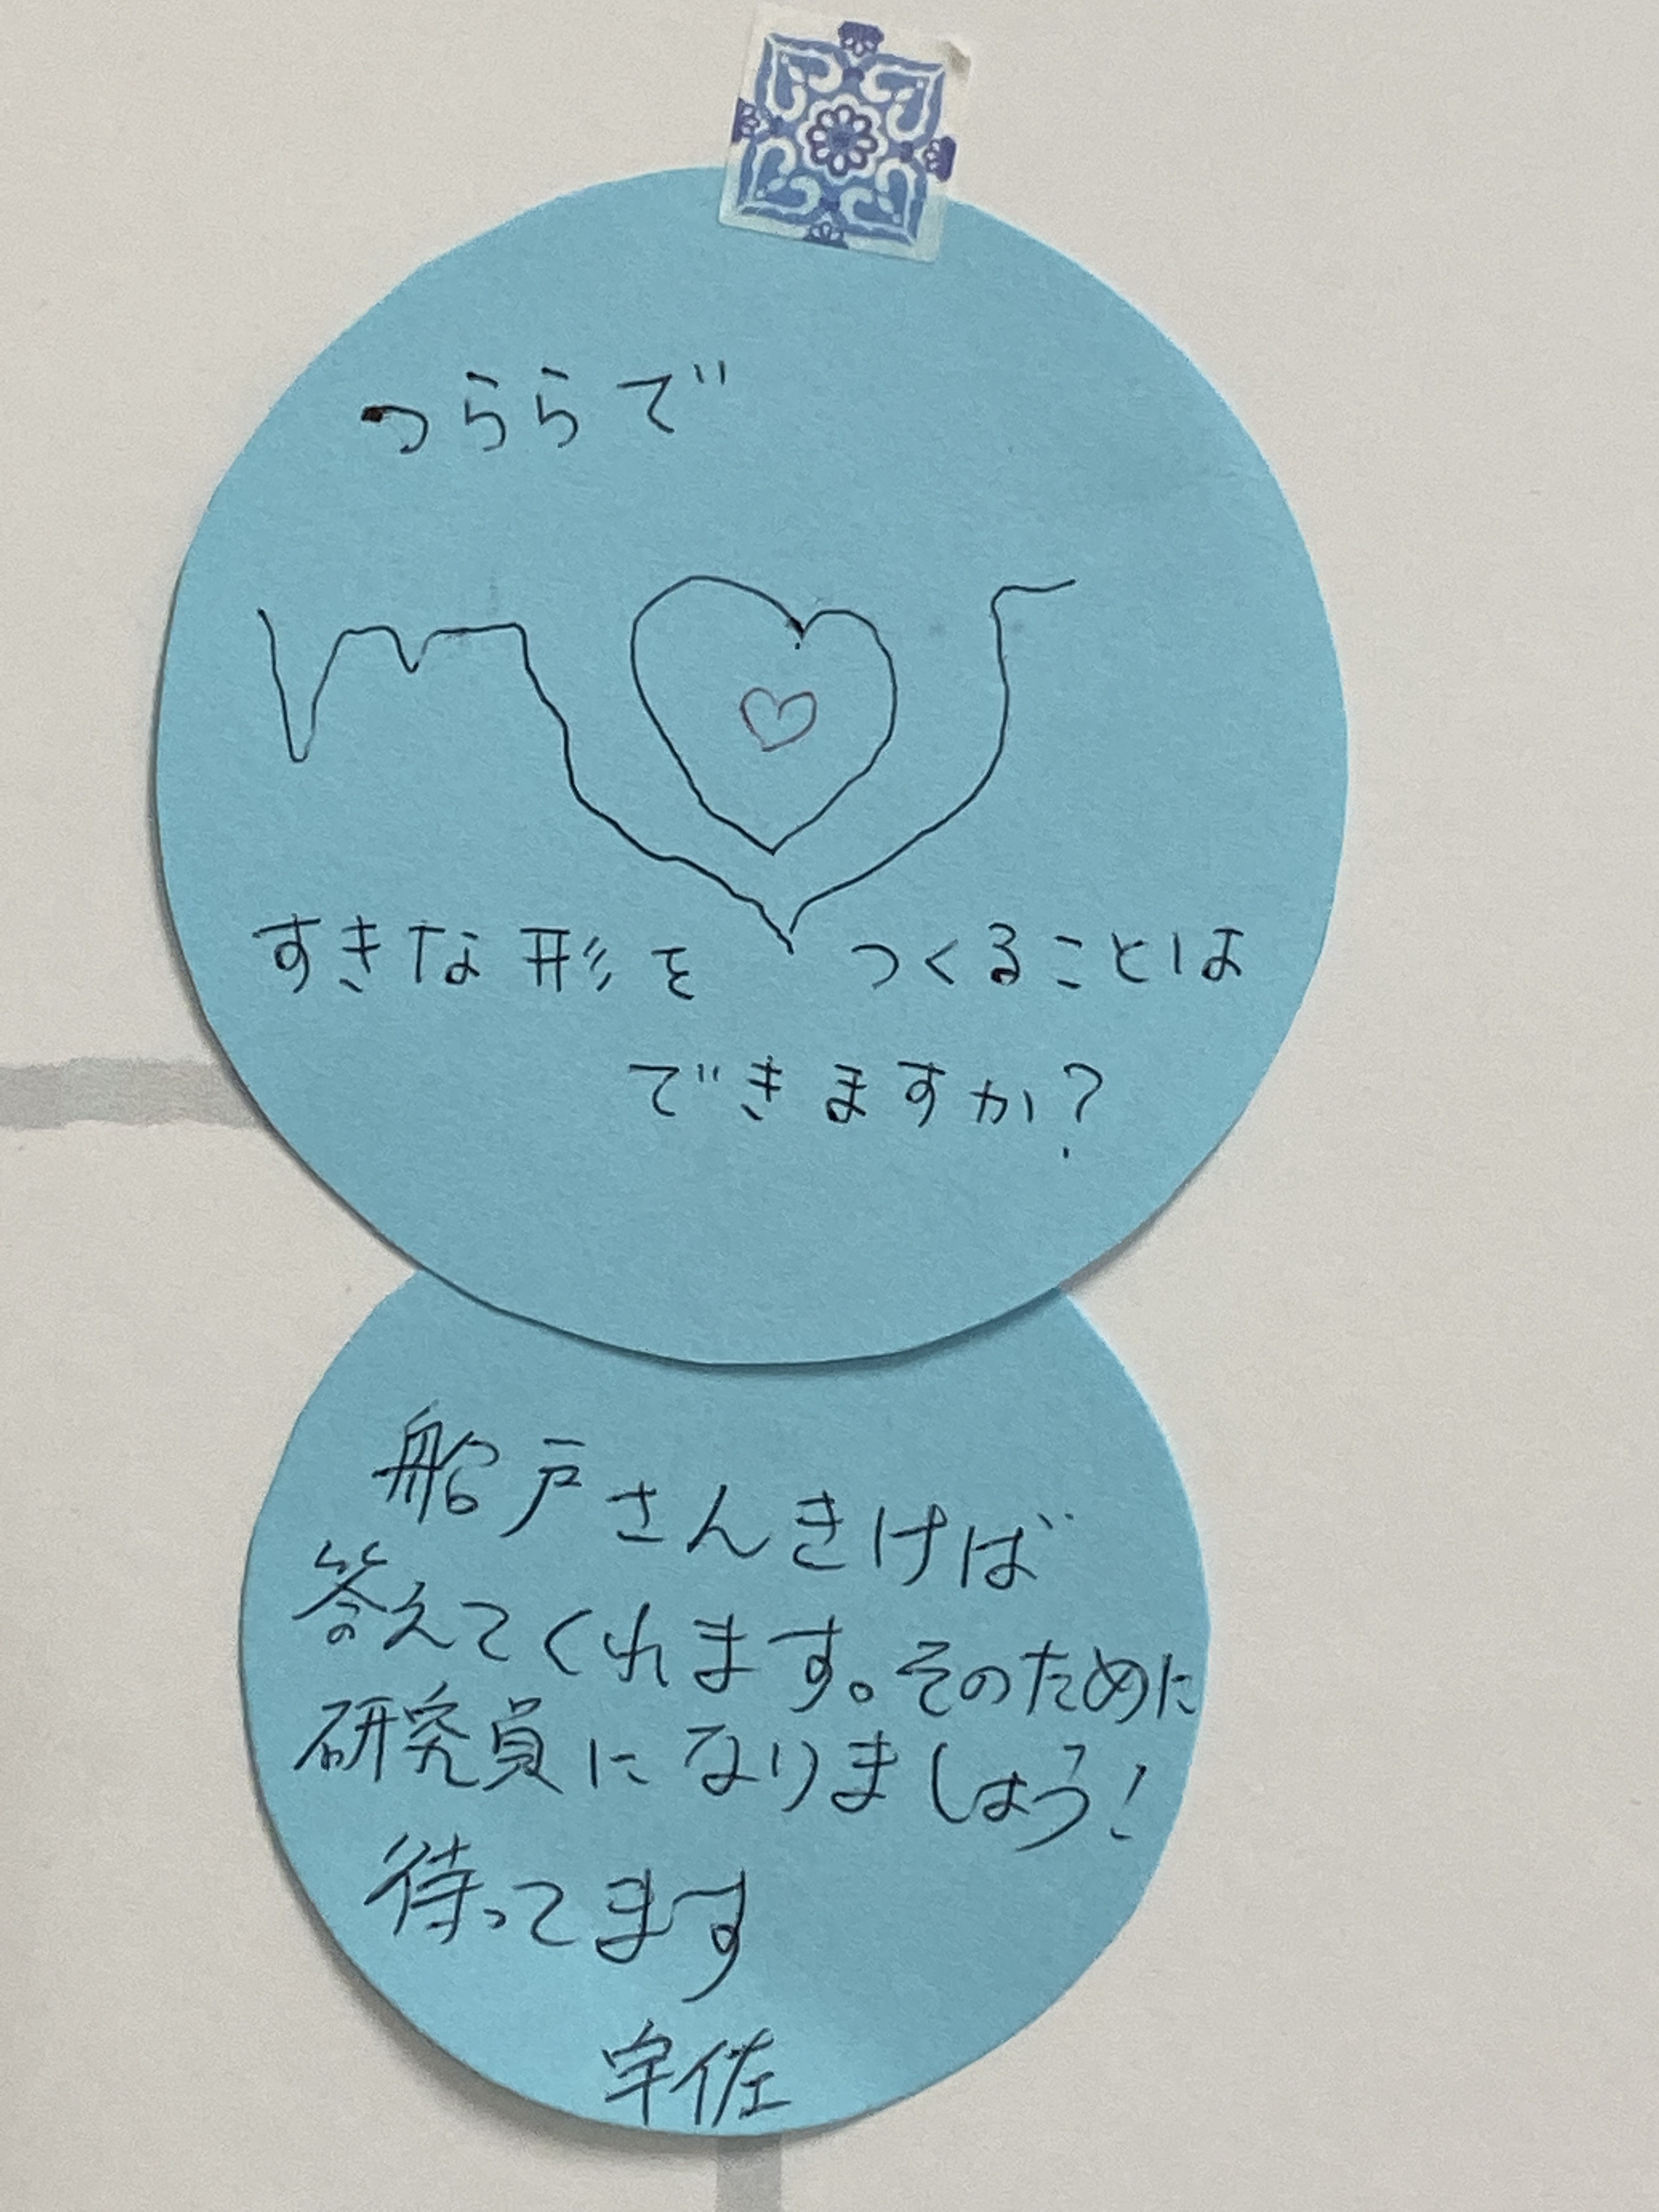 つららで
すきな形を つくることは
できますか?
船戸さんきけば
答えてくれます。そのために
研究員になりましょう!
待ってます
宇佐